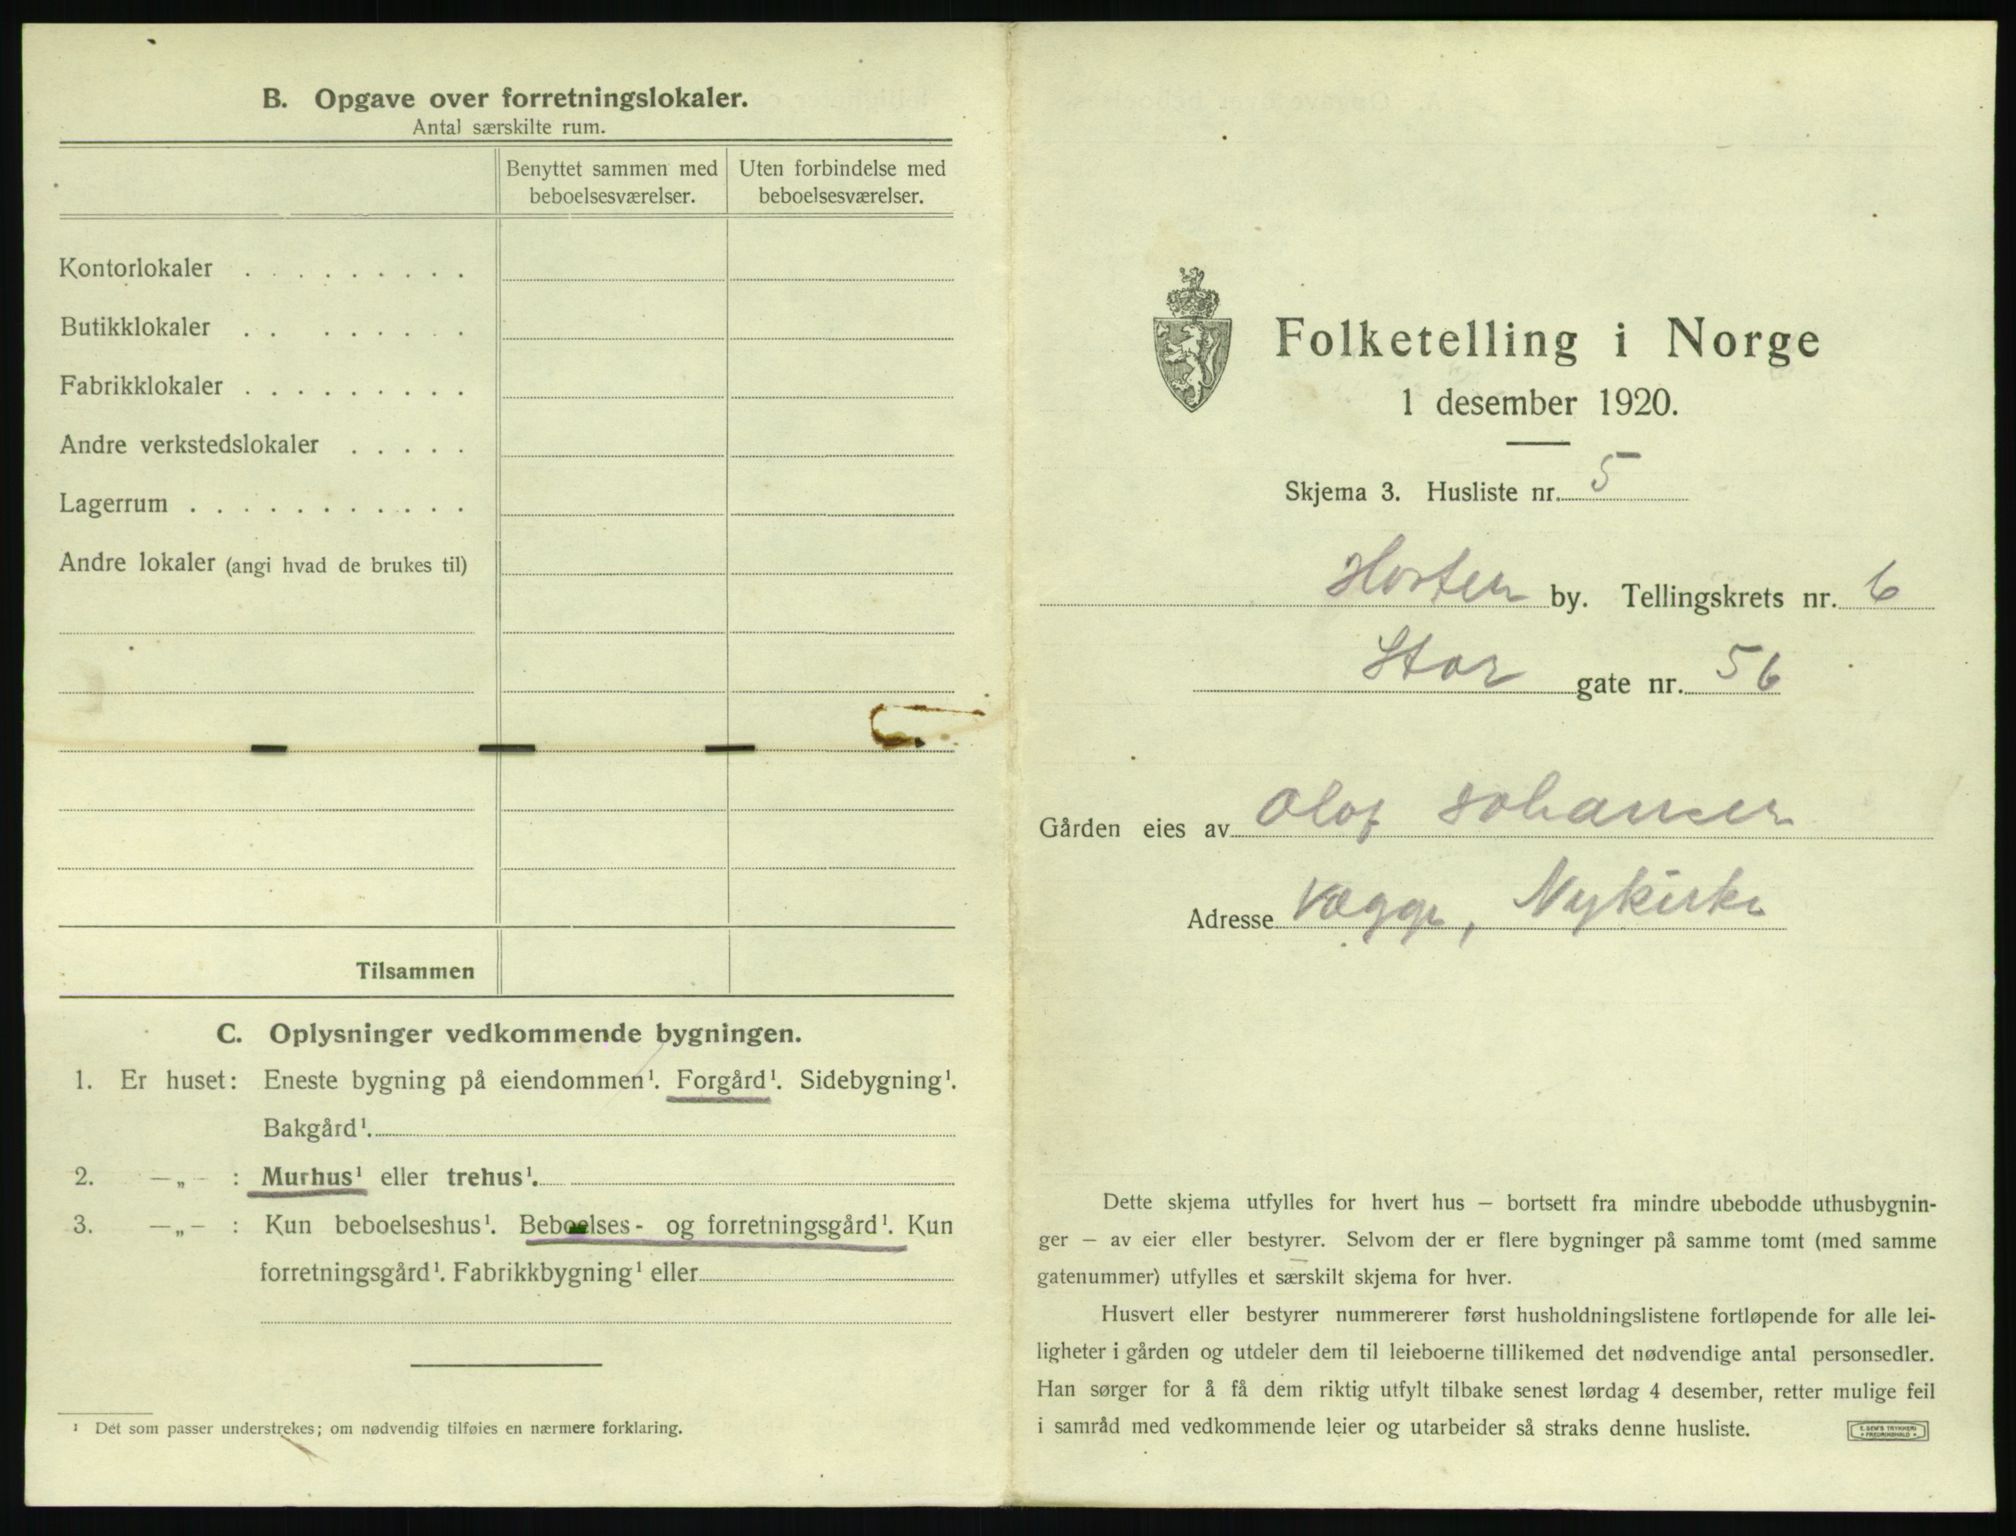 B. Opgave over forretningslokaler.
Antal særskilte rum.
Benyttet sammen med beboelsesværelser.
Uten forbindelse med beboelsesværelser.
Kontorlokaler . . . . . . . . .
Butikklokaler . . . . . . . .
Fabrikklokaler . . . . . . . . .
Andre verkstedslokaler . . . . .
Lagerrum . . . . . . . . . . .
Andre lokaler (angi hvad de brukes til)
Tilsammen
C. Oplysninger vedkommende bygningen.
1. Er huset: Eneste bygning på eiendommen¹. Forgård¹. Sidebygning¹.
Bakgård¹.
2. —„— : Murhus¹ eller trehus¹.
3. —„— : Kun beboelseshus¹. Beboelses- og forretningsgård¹. Kun
forretningsgård¹. Fabrikkbygning¹ eller
¹ Det som passer understrekes; om nødvendig tilføies en nærmere forklaring.
Folketelling i Norge
1 desember 1920.
Skjema 3. Husliste nr. 5
Horten by. Tellingskrets nr. 6
Stor gate nr. 56
Gården eies av Olof Johansen
Adresse Vægge, Nykirke
Dette skjema utfylles for hvert hus — bortsett fra mindre ubebodde uthusbygnin-
ger — av eier eller bestyrer. Selvom der er flere bygninger på samme tomt (med samme
gatenummer) utfylles et særskilt skjema for hver.
Husvert eller bestyrer nummererer først husholdningslistene fortløpende for alle lei-
ligheter i gården og utdeler dem til leieboerne tillikemed det nødvendige antal personsedler.
Han sørger for å få dem riktig utfylt tilbake senest lørdag 4 desember, retter mulige feil
i samråd med vedkommende leier og utarbeider så straks denne husliste.